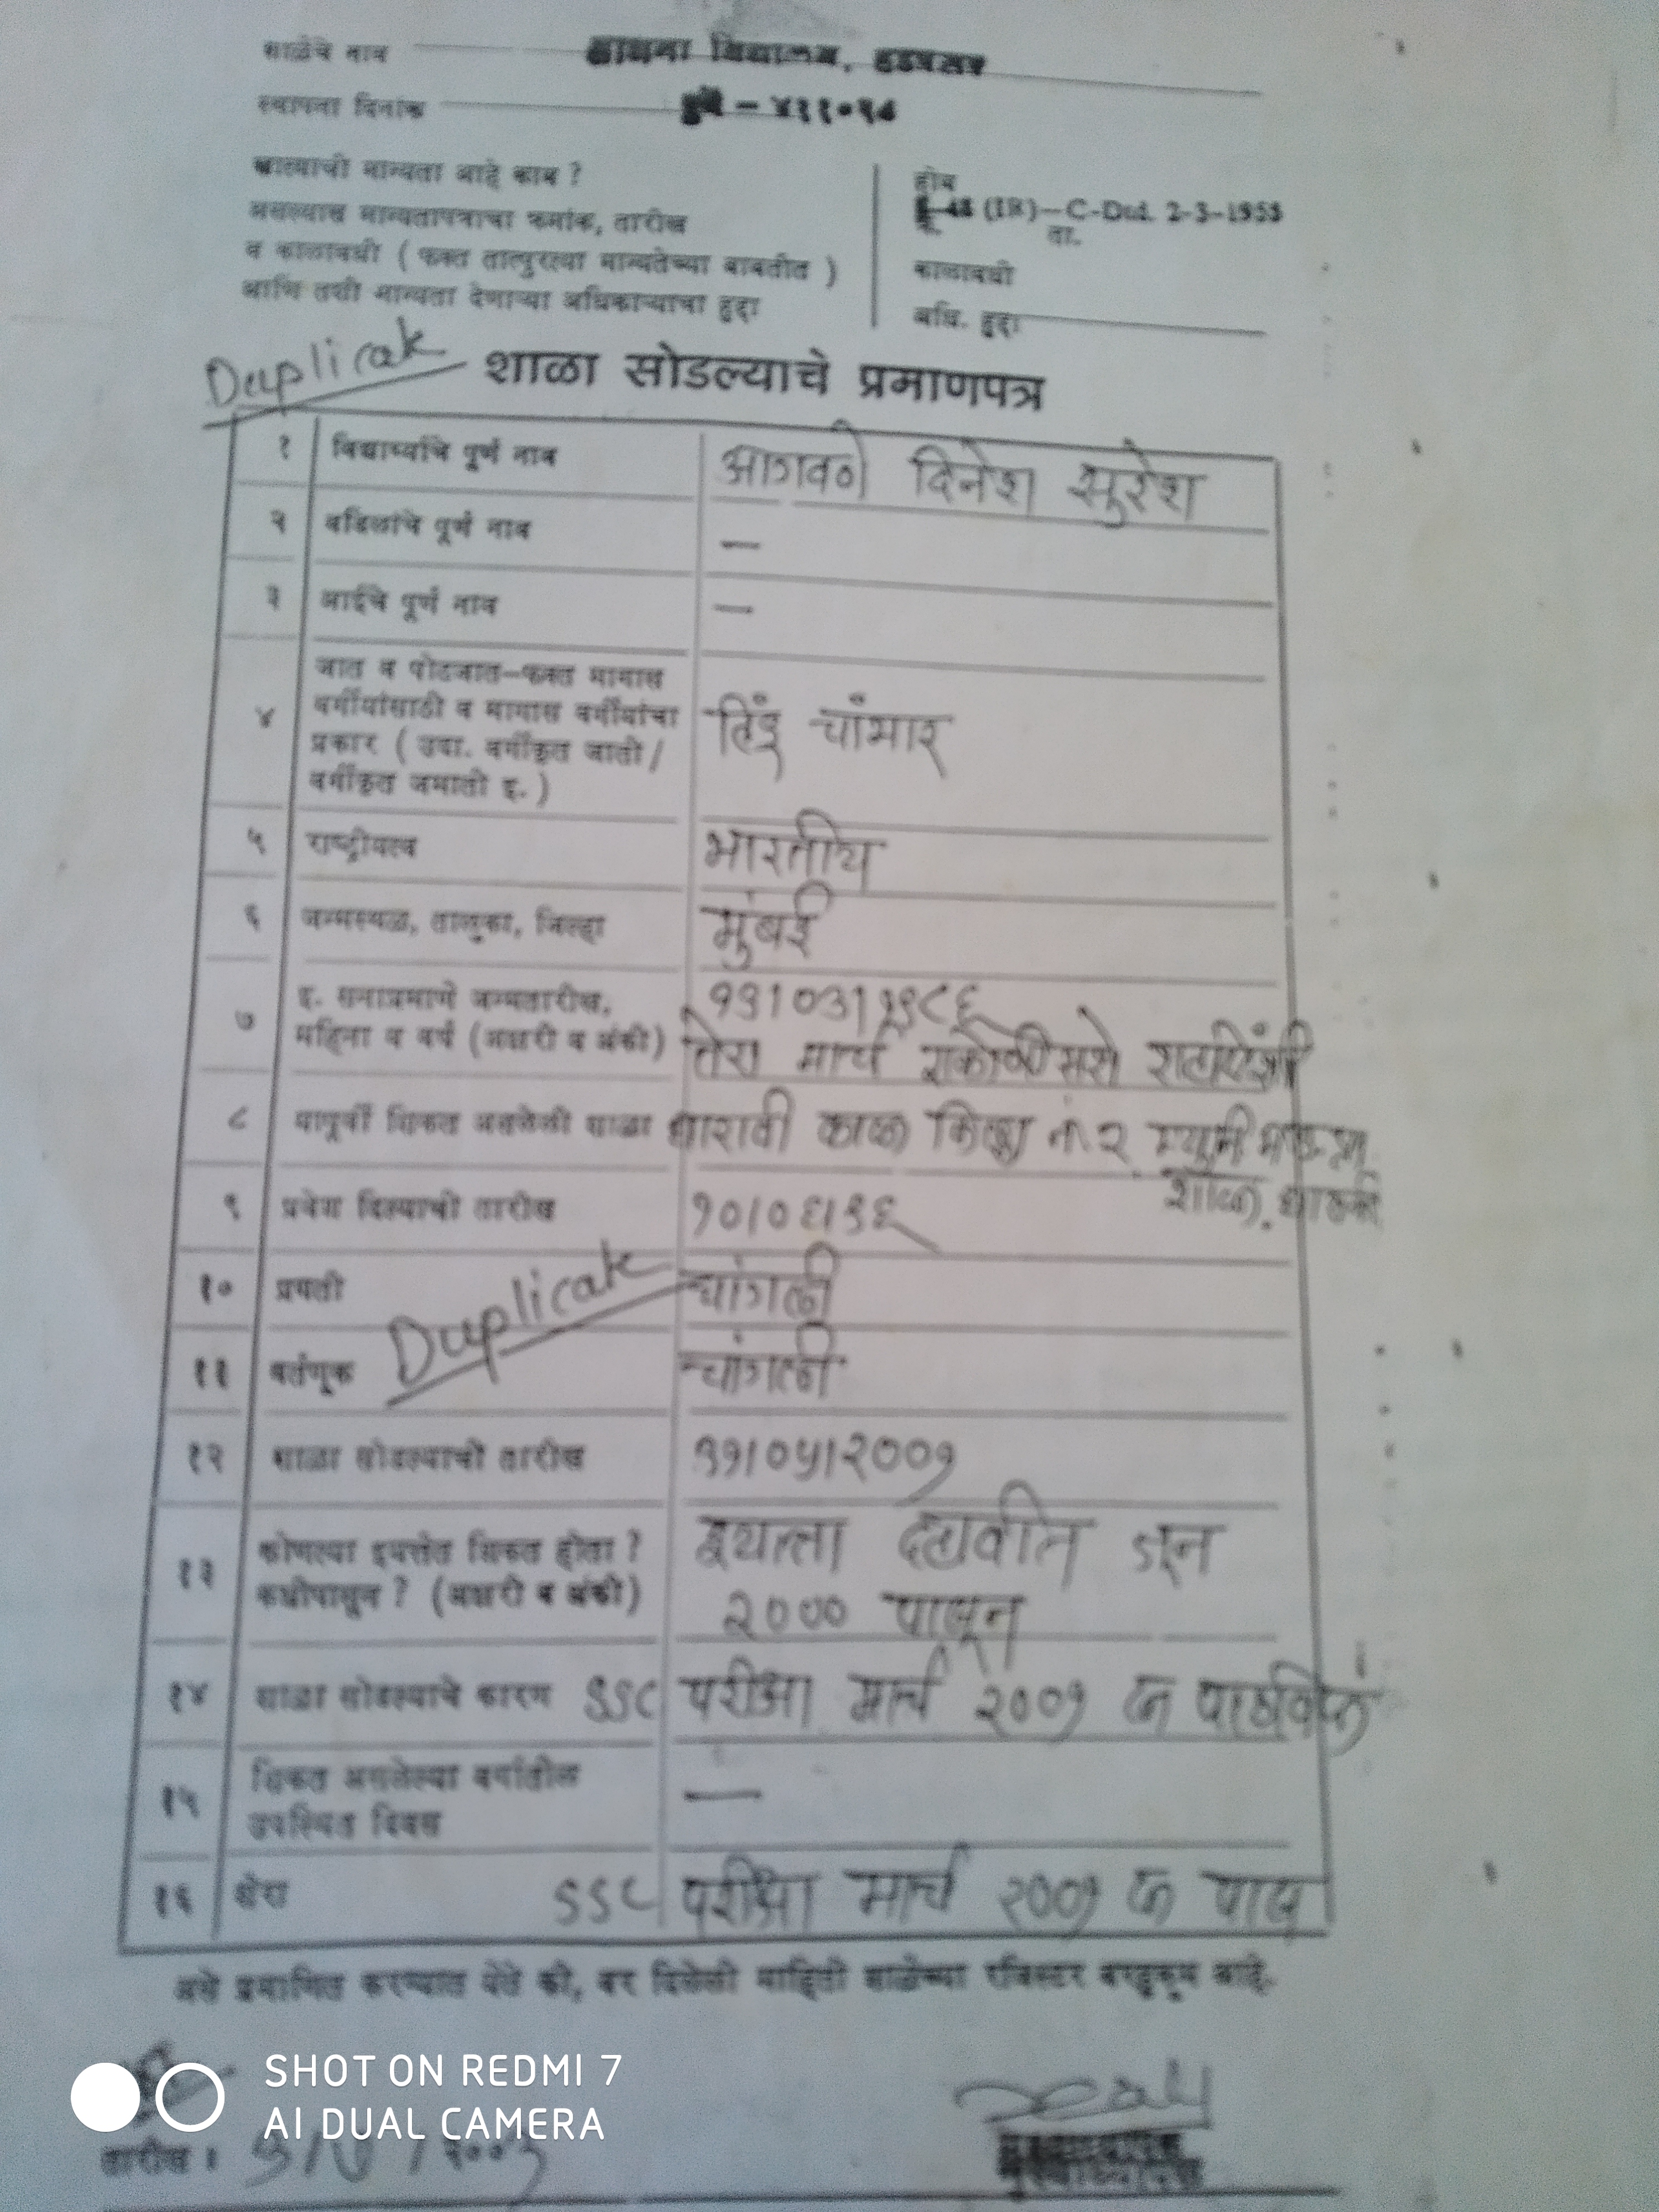 शाळेचे नाव साधना विद्यालय, हडपसर
स्थापना दिनांक पुणे - ४११०२८
खात्याची मान्यता आहे काय ? होय
असल्यास मान्यतापत्राचा क्रमांक, तारीख (IR)-C-Dut. 2-3-1953
ता.
व कालावधी ( फक्त तात्पुरत्या मान्यतेच्या बाबतीत ) कालावधी
आणि तशी मान्यता देणाऱ्या अधिकाऱ्याचा हुद्दा अधि. हुद्दा
Duplicate शाळा सोडल्याचे प्रमाणपत्र
१ विद्यार्थ्याचे पूर्ण नाव आगवणे दिनेश सुरेश
२ वडिलांचे पूर्ण नाव —
३ आईचे पूर्ण नाव —
जात व पोटजात-फक्त मागास
४ वर्गीयांसाठी व मागास वर्गीयांचा हिंदु चांभार
प्रकार ( उदा. वर्गीकृत जाती /
वर्गीकृत जमाती इ. )
५ राष्ट्रीयत्व भारतीय
६ जन्मस्थळ, तालुका, जिल्हा मुंबई
७ इ. सनाप्रमाणे जन्मतारीख, १३।०३।१९८६
महिना व वर्ष (अक्षरी व अंकी) तेरा मार्च एकोणीसशे शहाऐंशी
८ यापूर्वी शिकत असलेली शाळा धारावी काळा किल्ला नं. २
शाळा, धारावी
९ प्रवेश दिल्याची तारीख १०।०६।९६
१० प्रगती चांगली
११ वर्तणूक Duplicate चांगली
१२ शाळा सोडल्याची तारीख ३१।०५।२००१
१३ कोणत्या इयत्तेत शिकत होता ? इयत्ता दहावीत जून
कधीपासून ? (अक्षरी व अंकी) २००० पासून
१४ शाळा सोडल्याचे कारण SSC परीक्षा मार्च २००१ ला पाठविले
१५ शिकत असलेल्या वर्गातील —
उपस्थित दिवस
१६ शेरा SSC परीक्षा मार्च २००१ ला पास
असे प्रमाणित करण्यात येते की, वर दिलेली माहिती शाळेच्या रजिस्टर बरहुकूम आहे.
SHOT ON REDMI 7
AI DUAL CAMERA
तारीख :
मुख्याध्यापक